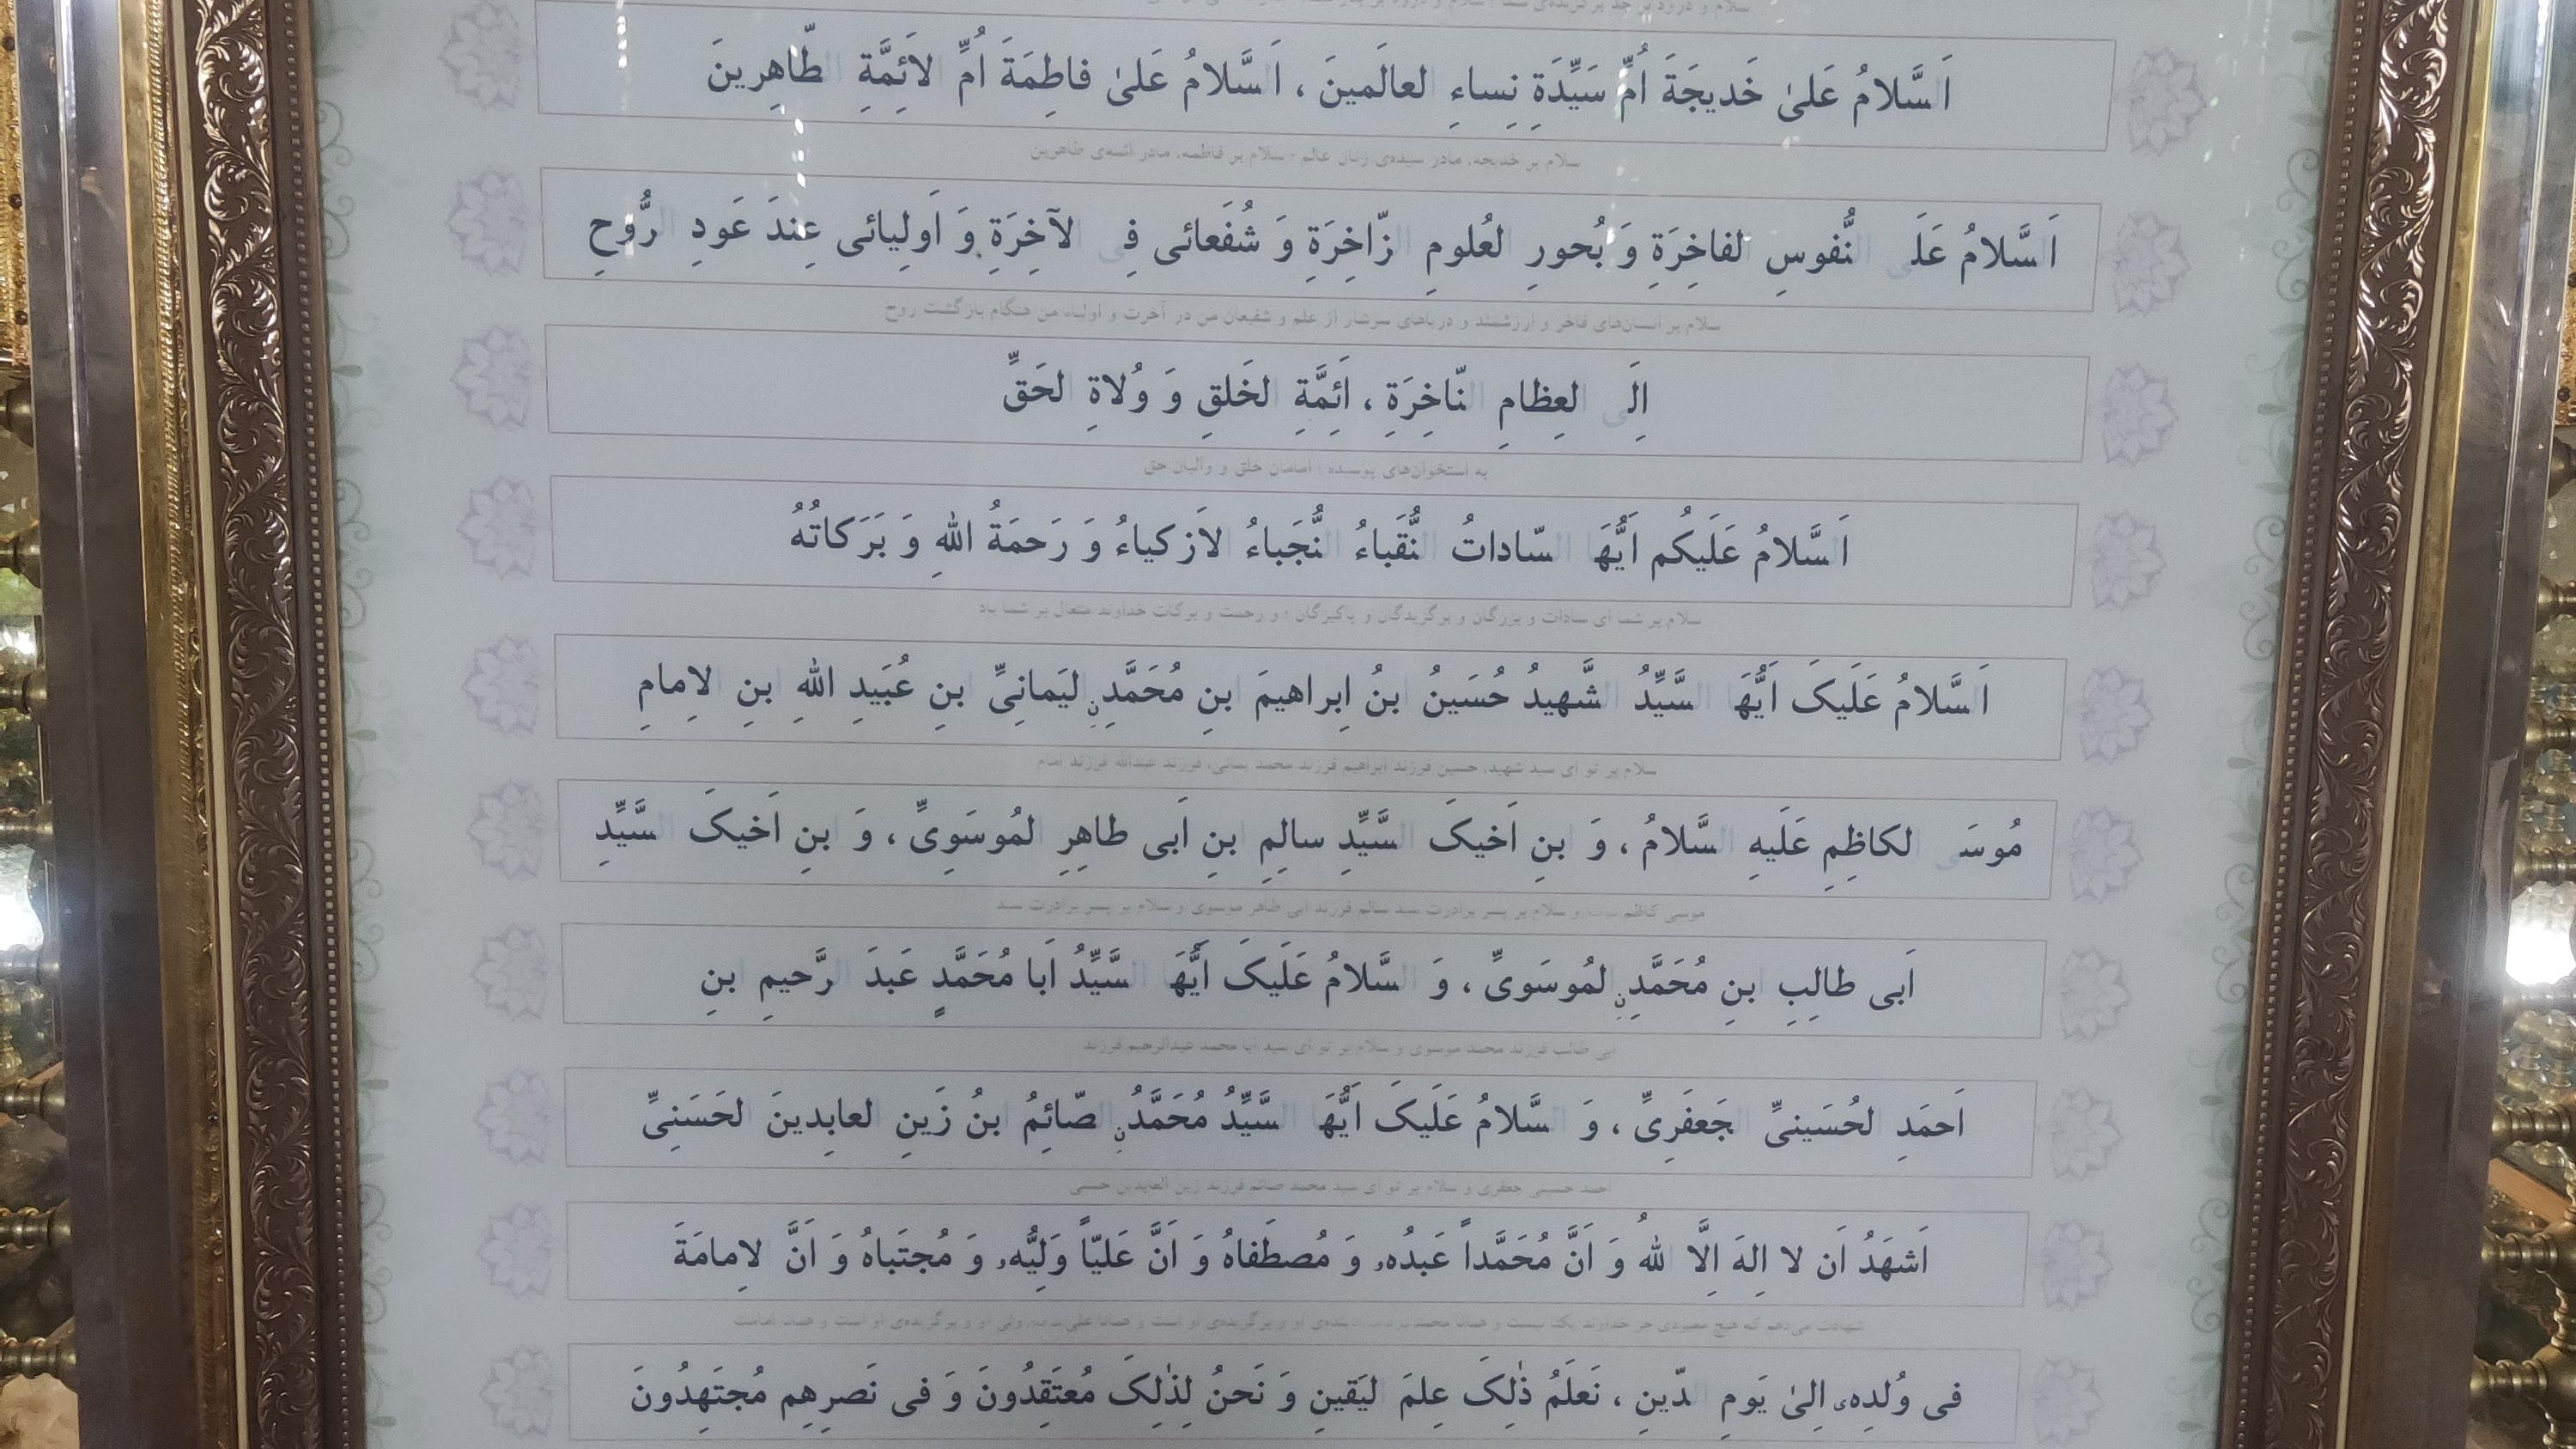 اَلسَّلامُ عَلیٰ خَدیجَةَ اُمِّ سَیِّدَةِ نِساءِ العالَمینَ ، اَلسَّلامُ عَلیٰ فاطِمَةَ اُمِّ الاَئِمَّةِ الطّاهِرینَ
سلام بر خدیجه، مادر سیده‌ی زنان عالم ؛ سلام بر فاطمه، مادر ائمه‌ی طاهرین
اَلسَّلامُ عَلَی النُّفوسِ الفاخِرَةِ وَ بُحورِ العُلومِ الزّاخِرَةِ وَ شُفَعائی فِی الآخِرَةِ وَ اَولِیائی عِندَ عَودِ الرُّوحِ
سلام بر انسان‌های فاخر و ارزشمند و دریاهای سرشار از علم و شفیعان من در آخرت و اولیاء من هنگام بازگشت روح
اِلَی العِظامِ النّاخِرَةِ ، اَئِمَّةِ الخَلقِ وَ وُلاةِ الحَقِّ
به استخوان‌های پوسیده ؛ امامان خلق و والیان حق
اَلسَّلامُ عَلَیکُم اَیُّهَا السّاداتُ النُّقَباءُ النُّجَباءُ الاَزکیاءُ وَ رَحمَةُ اللهِ وَ بَرَکاتُهُ
سلام بر شما ای سادات و بزرگان و برگزیدگان و پاکیزگان ؛ و رحمت و برکات خداوند متعال بر شما باد
اَلسَّلامُ عَلَیکَ اَیُّهَا السَّیِّدُ الشَّهیدُ حُسَینُ بنُ اِبراهیمَ بنِ مُحَمَّدِنِ الیَمانِیِّ ابنِ عُبَیدِ اللهِ ابنِ الاِمامِ
سلام بر تو ای سید شهید، حسین فرزند ابراهیم فرزند محمد یمانی، فرزند عبدالله فرزند امام
مُوسَی الکاظِمِ عَلَیهِ السَّلامُ ، وَ ابنِ اَخیکَ السَّیِّدِ سالِمِ ابنِ اَبی طاهِرِ المُوسَوِیِّ ، وَ ابنِ اَخیکَ السَّیِّدِ
موسی کاظم و سلام بر پسر برادرت سید سالم فرزند ابی طاهر موسوی و سلام بر پسر برادرت سید
اَبی طالِبِ ابنِ مُحَمَّدِنِ المُوسَویِّ ، وَ السَّلامُ عَلَیکَ اَیُّهَا السَّیِّدُ اَبا مُحَمَّدٍ عَبدَ الرَّحیمِ ابنِ
ابی طالب فرزند محمد موسوی و سلام بر تو ای سید ابا محمد عبدالرحیم فرزند
اَحمَدِ الحُسَینیِّ الجَعفَرِیِّ ، وَ السَّلامُ عَلَیکَ اَیُّهَا السَّیِّدُ مُحَمَّدُنِ الصّائِمُ ابنُ زَینِ العابِدینَ الحَسَنِیِّ
احمد حسینی جعفری و سلام بر تو ای سید محمد صائم فرزند زین العابدین حسنی
اَشهَدُ اَن لا اِلهَ اِلَّا اللهُ وَ اَنَّ مُحَمَّداً عَبدُه، وَ مُصطَفاهُ وَ اَنَّ عَلیّاً وَلِیُّه، وَ مُجتَباهُ وَ اَنَّ الاِمامَةَ
شهادت می‌دهم که هیچ معبودی جز خداوند یک نیست و همانا محمد بنده‌ی او و برگزیده‌ی او است و همانا علی ولی او و برگزیده‌ی او است و همانا امامت
فی وُلدِه اِلیٰ یَومِ الدّینِ ، نَعلَمُ ذٰلِکَ عِلمَ الیَقینِ وَ نَحنُ لِذٰلِکَ مُعتَقِدُونَ وَ فی نَصرِهِم مُجتَهِدُونَ